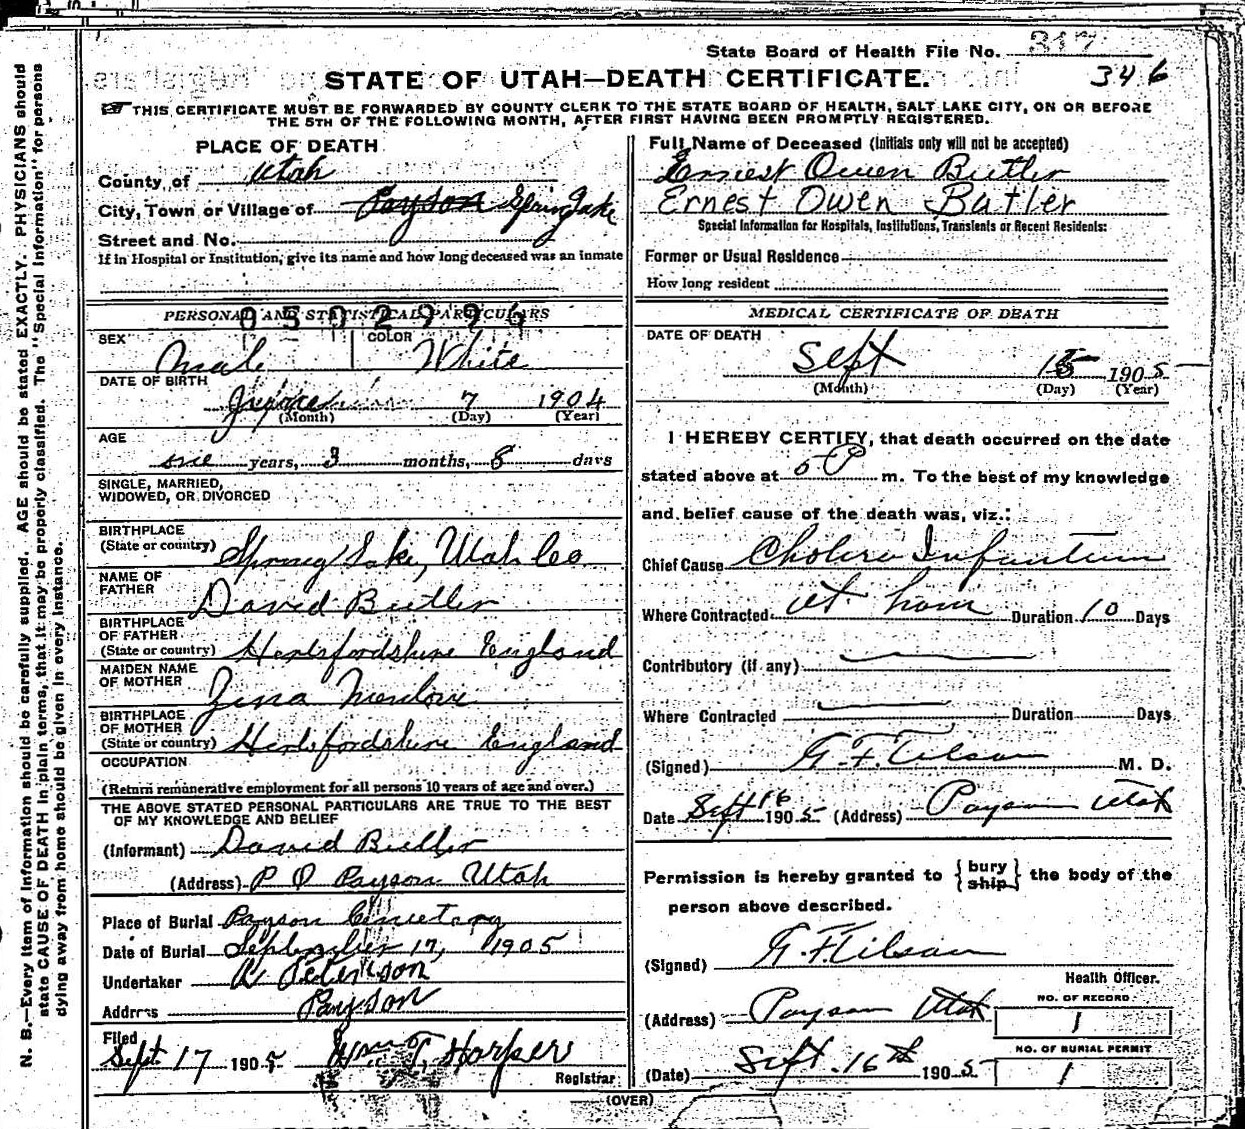 State Board of Health File No. 317
346
STATE OF UTAH—DEATH CERTIFICATE.
THIS CERTIFICATE MUST BE FORWARDED BY COUNTY CLERK TO THE STATE BOARD OF HEALTH, SALT LAKE CITY, ON OR BEFORE
THE 5TH OF THE FOLLOWING MONTH, AFTER FIRST HAVING BEEN PROMPTLY REGISTERED.
N. B.—Every item of information should be carefully supplied. AGE should be stated EXACTLY. PHYSICIANS should
state CAUSE OF DEATH in plain terms, that it may be properly classified. The "Special Information" for persons
dying away from home should be given in every instance.
PLACE OF DEATH
County of Utah
City, Town or Village of Payson Spring Lake
Street and No.
If in Hospital or Institution, give its name and how long deceased was an inmate
Full Name of Deceased (Initials only will not be accepted)
Ernest Owen Butler
Ernest Owen Butler
Special Information for Hospitals, Institutions, Transients or Recent Residents:
Former or Usual Residence
How long resident
PERSONAL AND STATISTICAL PARTICULARS
SEX Male COLOR White
DATE OF BIRTH
June 7 1904
(Month) (Day) (Year)
AGE
one years, 3 months, 8 days
SINGLE, MARRIED,
WIDOWED, OR DIVORCED
BIRTHPLACE
(State or country) Spring Lake, Utah Co
NAME OF
FATHER David Butler
BIRTHPLACE
OF FATHER
(State or country) Hertsfordshire England
MAIDEN NAME
OF MOTHER Zina
BIRTHPLACE
OF MOTHER
(State or country) Hertsfordshire England
OCCUPATION
(Return remunerative employment for all persons 10 years of age and over.)
THE ABOVE STATED PERSONAL PARTICULARS ARE TRUE TO THE BEST
OF MY KNOWLEDGE AND BELIEF
(Informant) David Butler
(Address) P O Payson Utah
Place of Burial Payson Cemetary
Date of Burial September 17, 1905
Undertaker Peterson
Address Payson
Filed
Sept 17 1905 Wm T. Harper
Registrar
MEDICAL CERTIFICATE OF DEATH
DATE OF DEATH
Sept 15 1905
(Month) (Day) (Year)
I HEREBY CERTIFY, that death occurred on the date
stated above at 5 P m. To the best of my knowledge
and belief cause of the death was, viz.:
Chief Cause Cholera Infantum
Where Contracted at home Duration 10 Days
Contributory (if any)
Where Contracted Duration Days
(Signed) G. F. Tilson M. D.
Date Sept 16 1905 (Address) Payson Utah
Permission is hereby granted to { bury ship } the body of the
person above described.
(Signed) G. F. Tilson
Health Officer.
(Address) Payson Utah
NO. OF RECORD
1
(Date) Sept. 16th 1905
NO. OF BURIAL PERMIT
1
(OVER)